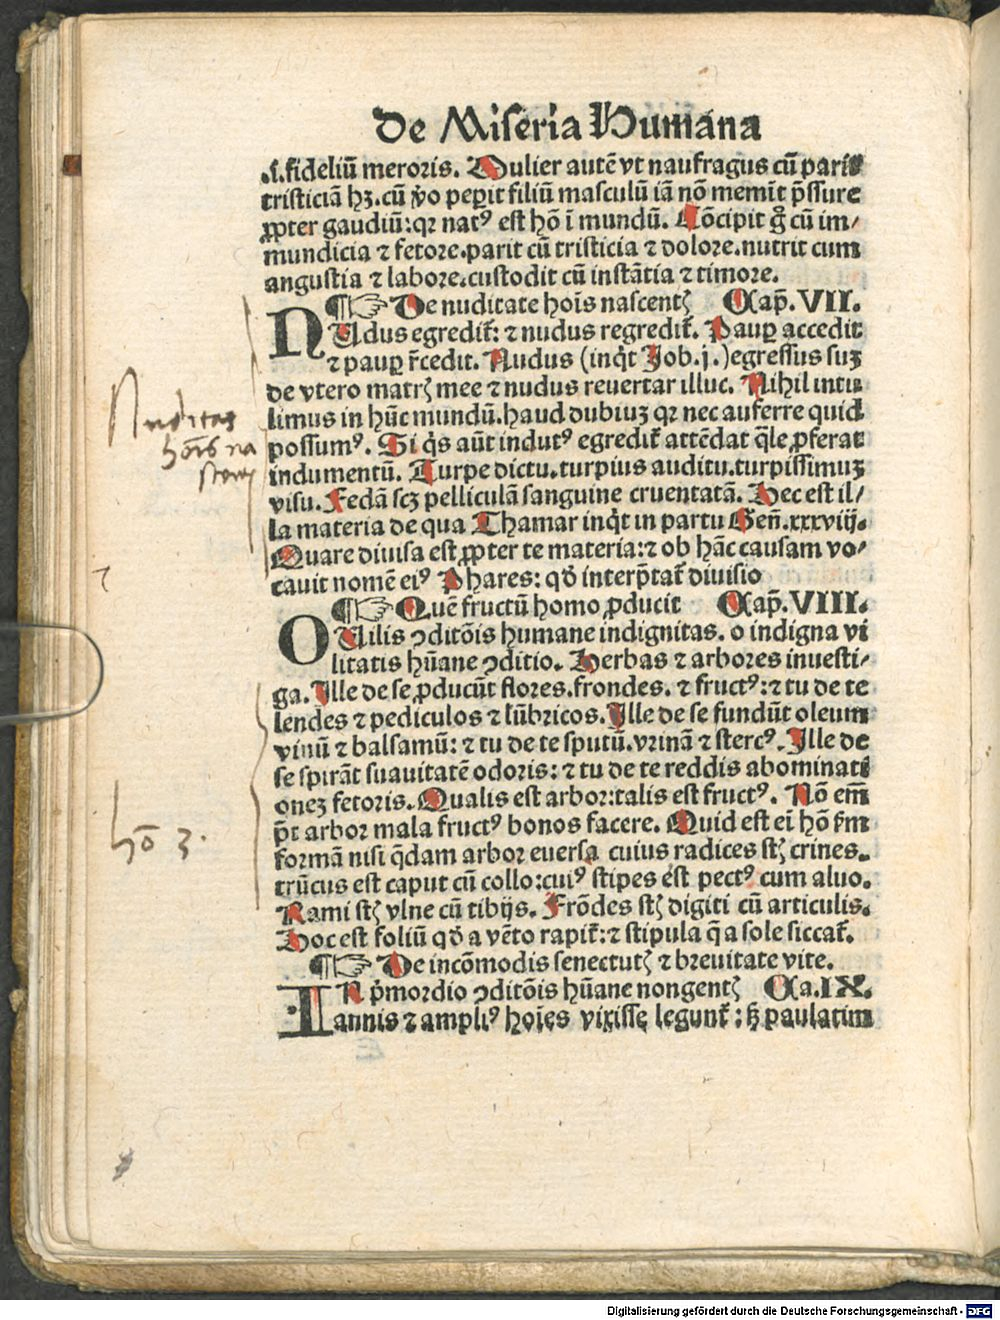 De Miseria Humana
.i. fideliū meroris. Mulier autē vt naufragus cū parit
tristiciā hꝫ. cū v̓o peperit filiū masculū iā nō memīt p̄ssure
ꝓpter gaudiū: qꝛ natꝰ est hō ī mundū. Cōcipit g̊ cū im⸗
mundicia ⁊ fetore. parit cū tristicia ⁊ dolore. nutrit cum
angustia ⁊ labore. custodit cū instātia ⁊ timore.
¶☞ De nuditate hoīs nascentꝭ Cap̄. VII.
NUdus egredit᷑: ⁊ nudus regredit᷑. Pauꝑ accedit
⁊ pauꝑ r̄cedit. Nudus (inq̇t Job. j.) egressus suꝫ
de vtero matrꝭ mee ⁊ nudus reuertar illuc. Nihil intu
limus in hūc mundū. haud dubiuꝫ qꝛ nec auferre quid
possumꝰ. Si q̇s aūt indutꝰ egredit᷑ attēdat q̄le ꝓferat
indumentū. Turpe dictu. turpius auditu. turpissimuꝫ
visu. Fedā scꝫ pelliculā sanguine cruentatā. Hec est il⸗
la materia de qua Thamar inq̇t in partu Gen̄. xxxviij.
Quare diuisa est ꝓpter te materia: ⁊ ob hāc causam vo⸗
cauit nomē eiꝰ Phares: qd̓ interp̄tat᷑ diuisio
¶☞ Quē fructū homo ꝓducit Cap̄. VIII.
OUilis ↄditōis humane indignitas. o indigna vi
litatis hūane ↄditio. Herbas ⁊ arbores inuesti⸗
ga. Ille de se ꝓducūt flores. frondes. ⁊ fructꝰ: ⁊ tu de te
lendes ⁊ pediculos ⁊ lūbricos. Ille de se fundūt oleum
vinū ⁊ balsamū: ⁊ tu de te sputū. vrinā ⁊ stercꝰ. Ille de
se spirāt suauitatē odoris: ⁊ tu de te reddis abominati
oneꝫ fetoris. Qualis est arbor: talis est fructꝰ. Nō em̄
p̄t arbor mala fructꝰ bonos facere. Quid est em̄ hō ẜm
formā nisi q̄dam arbor euersa cuius radices st̄ꝭ crines.
trūcus est caput cū collo: cuiꝰ stipes est pectꝰ cum aluo.
Rami st̄ꝭ vlne cū tibijs. Frōdes st̄ꝭ digiti cū articulis.
Hoc est foliū qd̓ a vēto rapit᷑: ⁊ stipula q̄ a sole siccat᷑.
¶☞ De incōmodis senectutꝭ ⁊ breuitate vite.
IN p̓mordio ↄditōis hūane nongentꝭ Ca. IX.
annis ⁊ ampliꝰ hoīes vixisse legunt᷑: ꝫ̄ paulatim
Nuditas
hoīs na
hō 3.
Digitalisierung gefördert durch die Deutsche Forschungsgemeinschaft - DFG